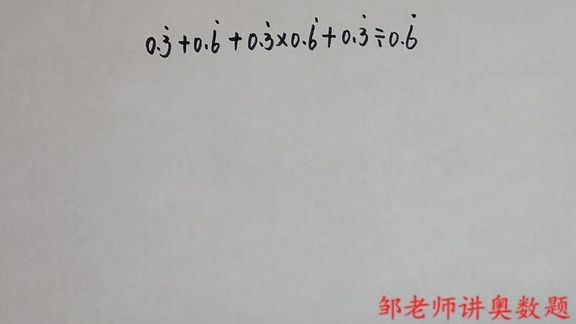 0.3̇+0.6̇+0.3̇×0.6̇+0.3̇÷0.6̇
邹老师讲奥数题